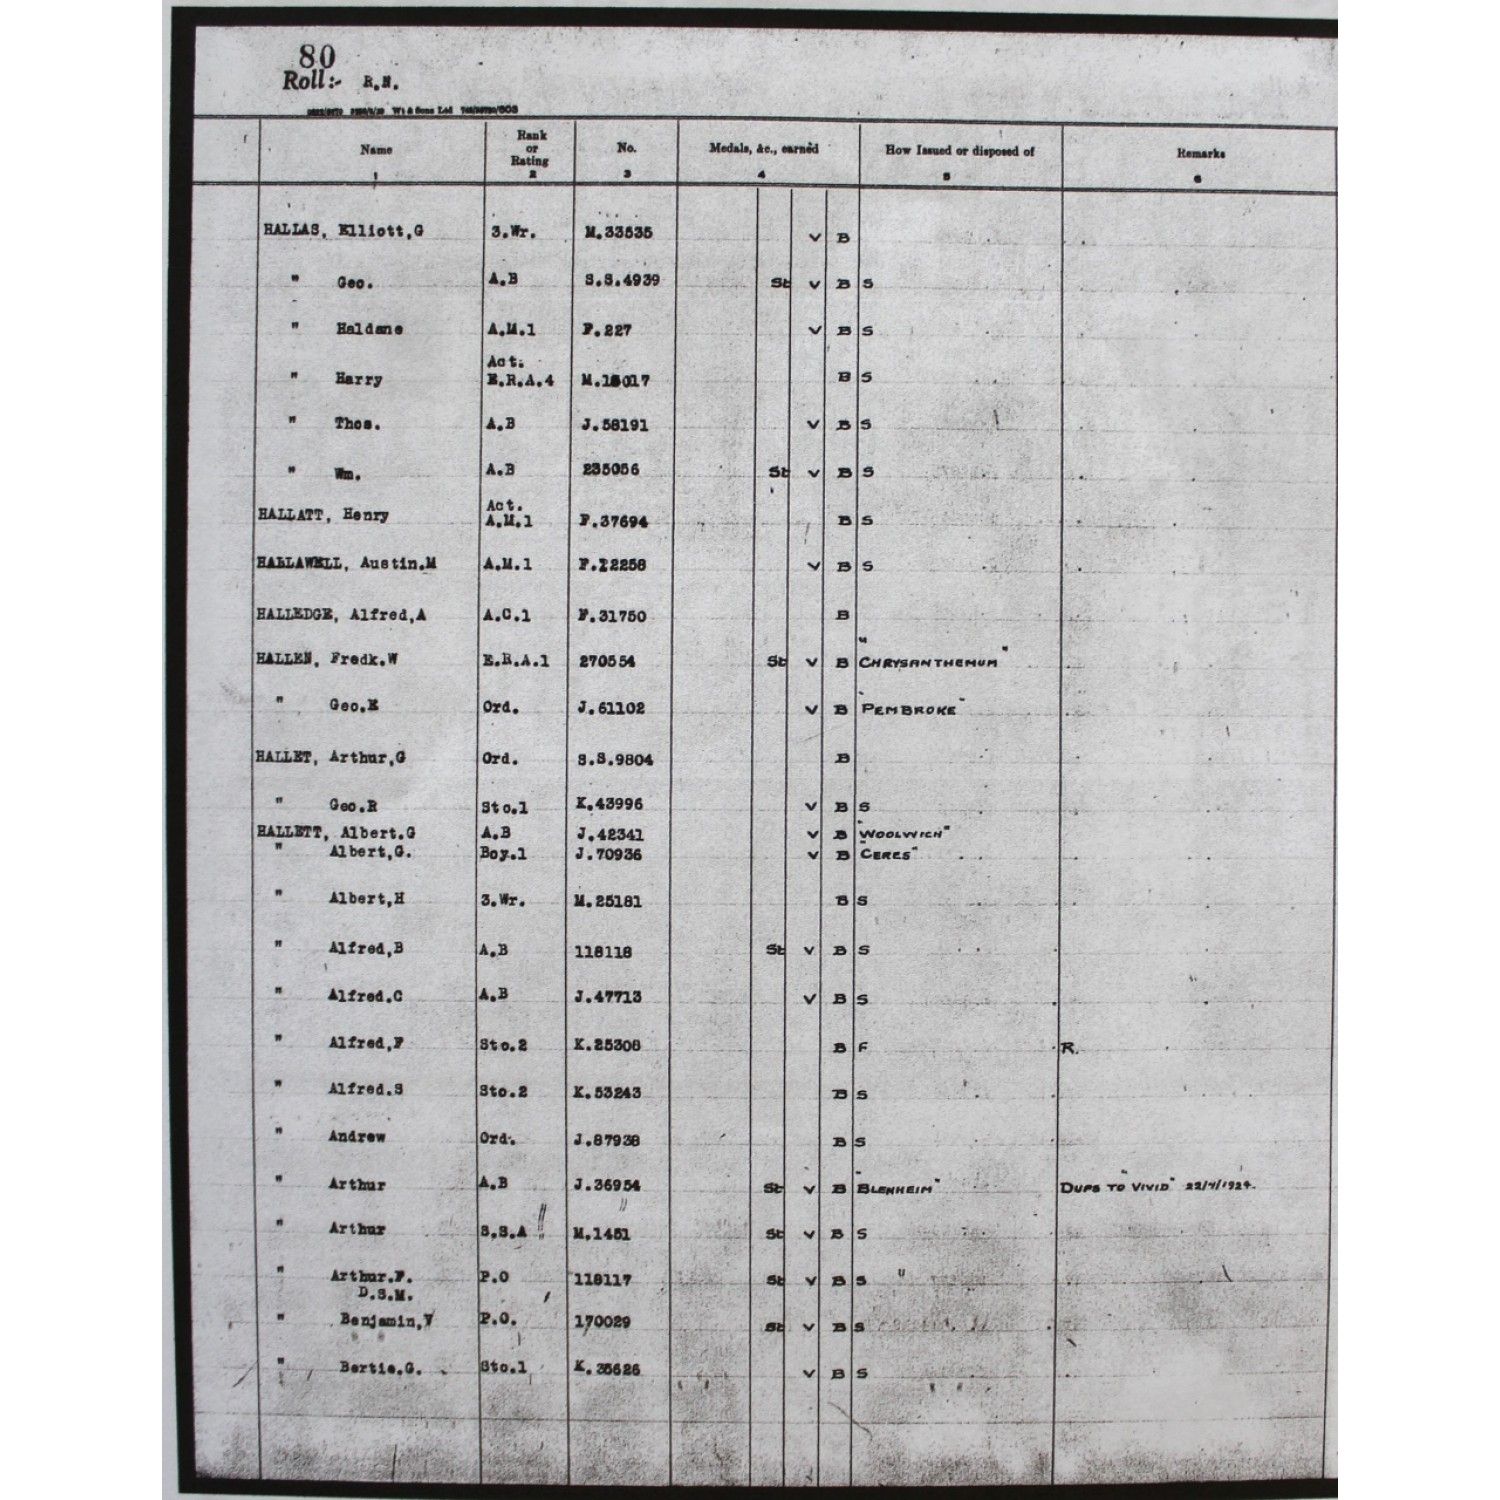 80
Roll:- R.N.
Wt & Sons Ltd
Name Rank or Rating No. Medals, &c., earned How Issued or disposed of Remarks
1 2 3 4 5 6
HALLAS, Elliott,G 3.Wr. M.33535 V B
" Geo. A.B S.S.4939 St V B S
" Haldane A.M.1 F.227 V B S
" Harry Act. E.R.A.4 B S
" Thos. A.B J.58191 V B S
" Wm. A.B 235056 St V B S
HALLATT, Henry Act. A.M.1 F.37694 B S
HALLAWELL, Austin.M A.M.1 F.12258 V B S
HALLEDGE, Alfred,A A.C.1 F.31750 B
HALLEN, Fredk.W E.R.A.1 270554 St V B "CHRYSANTHEMUM"
" Geo.E Ord. J.61102 V B "PEMBROKE"
HALLET, Arthur,G Ord. S.S.9804 B
" Geo.R Sto.1 K.43996 V B S
HALLETT, Albert.G A.B J.42341 V B "WOOLWICH"
" Albert,G. Boy.1 J.70936 V B "CERES"
" Albert,H 3.Wr. M.25181 B S
" Alfred,B A.B 118118 St V B S
" Alfred.C A.B J.47713 V B S
" Alfred,F Sto.2 K.25308 B F R.
" Alfred.S Sto.2 K.53243 B S
" Andrew Ord. J.87938 B S
" Arthur A.B J.36954 St V B "BLENHEIM" DUPS TO "VIVID" 22/4/1924.
" Arthur S.S.A M.1451 St V B S
" Arthur.F. P.O 118117 St V B S "
D.S.M.
" Benjamin,V P.O. 170029 St V B S
" Bertie.G. Sto.1 K.35626 V B S